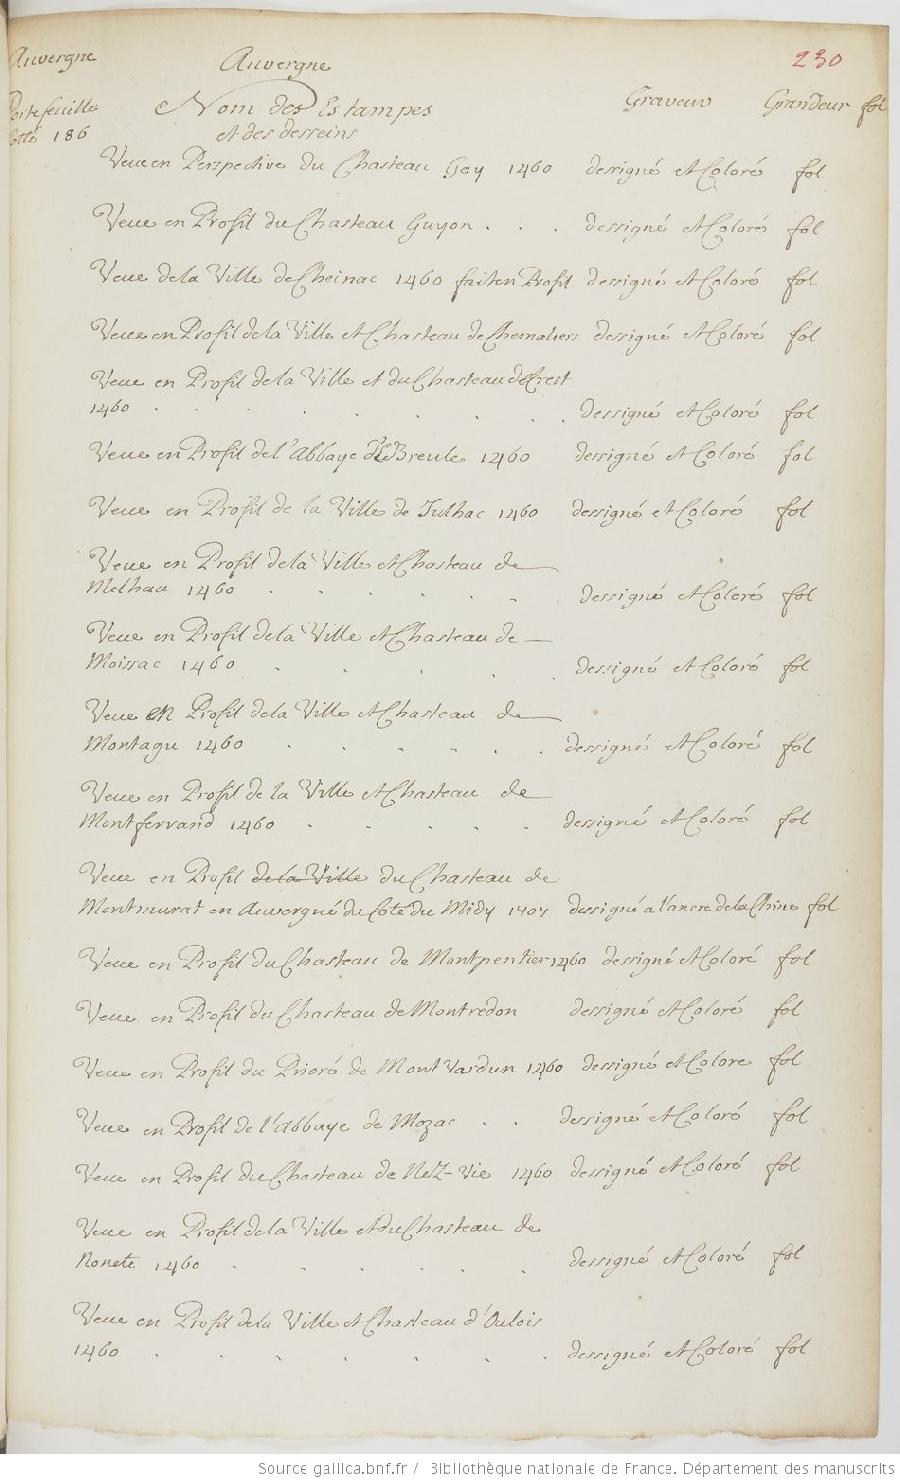 Auvergne
Auvergne
230
Portefeuille
cotté 186
Nom des Estampes
et des desseins
Graveur Grandeur fol
Veue en Perspective du Chasteau Gay 1460 dessigné et Coloré fol
Veue en Profil du Chasteau Guyon . . . dessigné et Coloré fol
Veue de la Ville de Cheinac 1460 fait en Profil dessigné et Coloré fol
Veue en Profil de la Ville et Chasteau de Chemaliers dessigné et Coloré fol
Veue en Profil de la Ville et du Chasteau de Crest
1460 . . . . . . . dessigné et Coloré fol
Veue en Profil de l'Abbaye Breule 1460 dessigné et Coloré fol
Veue en Profil de la Ville de Julhac 1460 dessigné et Coloré fol
Veue en Profil de la Ville et Chasteau de
Melhau 1460 . . . . . . dessigné et Coloré fol
Veue en Profil de la Ville et Chasteau de
Moissac 1460 . . . . . dessigné et Coloré fol
Veue en Profil de la Ville et Chasteau de
Montagu 1460 . . . . . . dessigné et Coloré fol
Veue en Profil de la Ville et Chasteau de
Montferrand 1460 . . . . . dessigné et Coloré fol
Veue en Profil de la Ville du Chasteau de
Montmurat en Auvergne du Coté du Midy 1707 dessigné a l'ancre de la Chine fol
Veue en Profil du Chasteau de Montpentier 1460 dessigné et Coloré fol
Veue en Profil du Chasteau de Montredon dessigné et Coloré fol
Veue en Profil du Prioré de Mont Vardun 1460 dessigné et Colore fol
Veue en Profil de l'abbaye de Mozac . . dessigné et Coloré fol
Veue en Profil du Chasteau de NeZ-Vie 1460 dessigné et Coloré fol
Veue en Profil de la Ville et du Chasteau de
Nonete 1460 . . . . . dessigné et Coloré fol
Veue en Profil de la Ville et Chasteau d'Oulois
1460 . . . . . . . dessigné et Coloré fol
Source gallica.bnf.fr / Bibliothèque nationale de France. Département des manuscrits